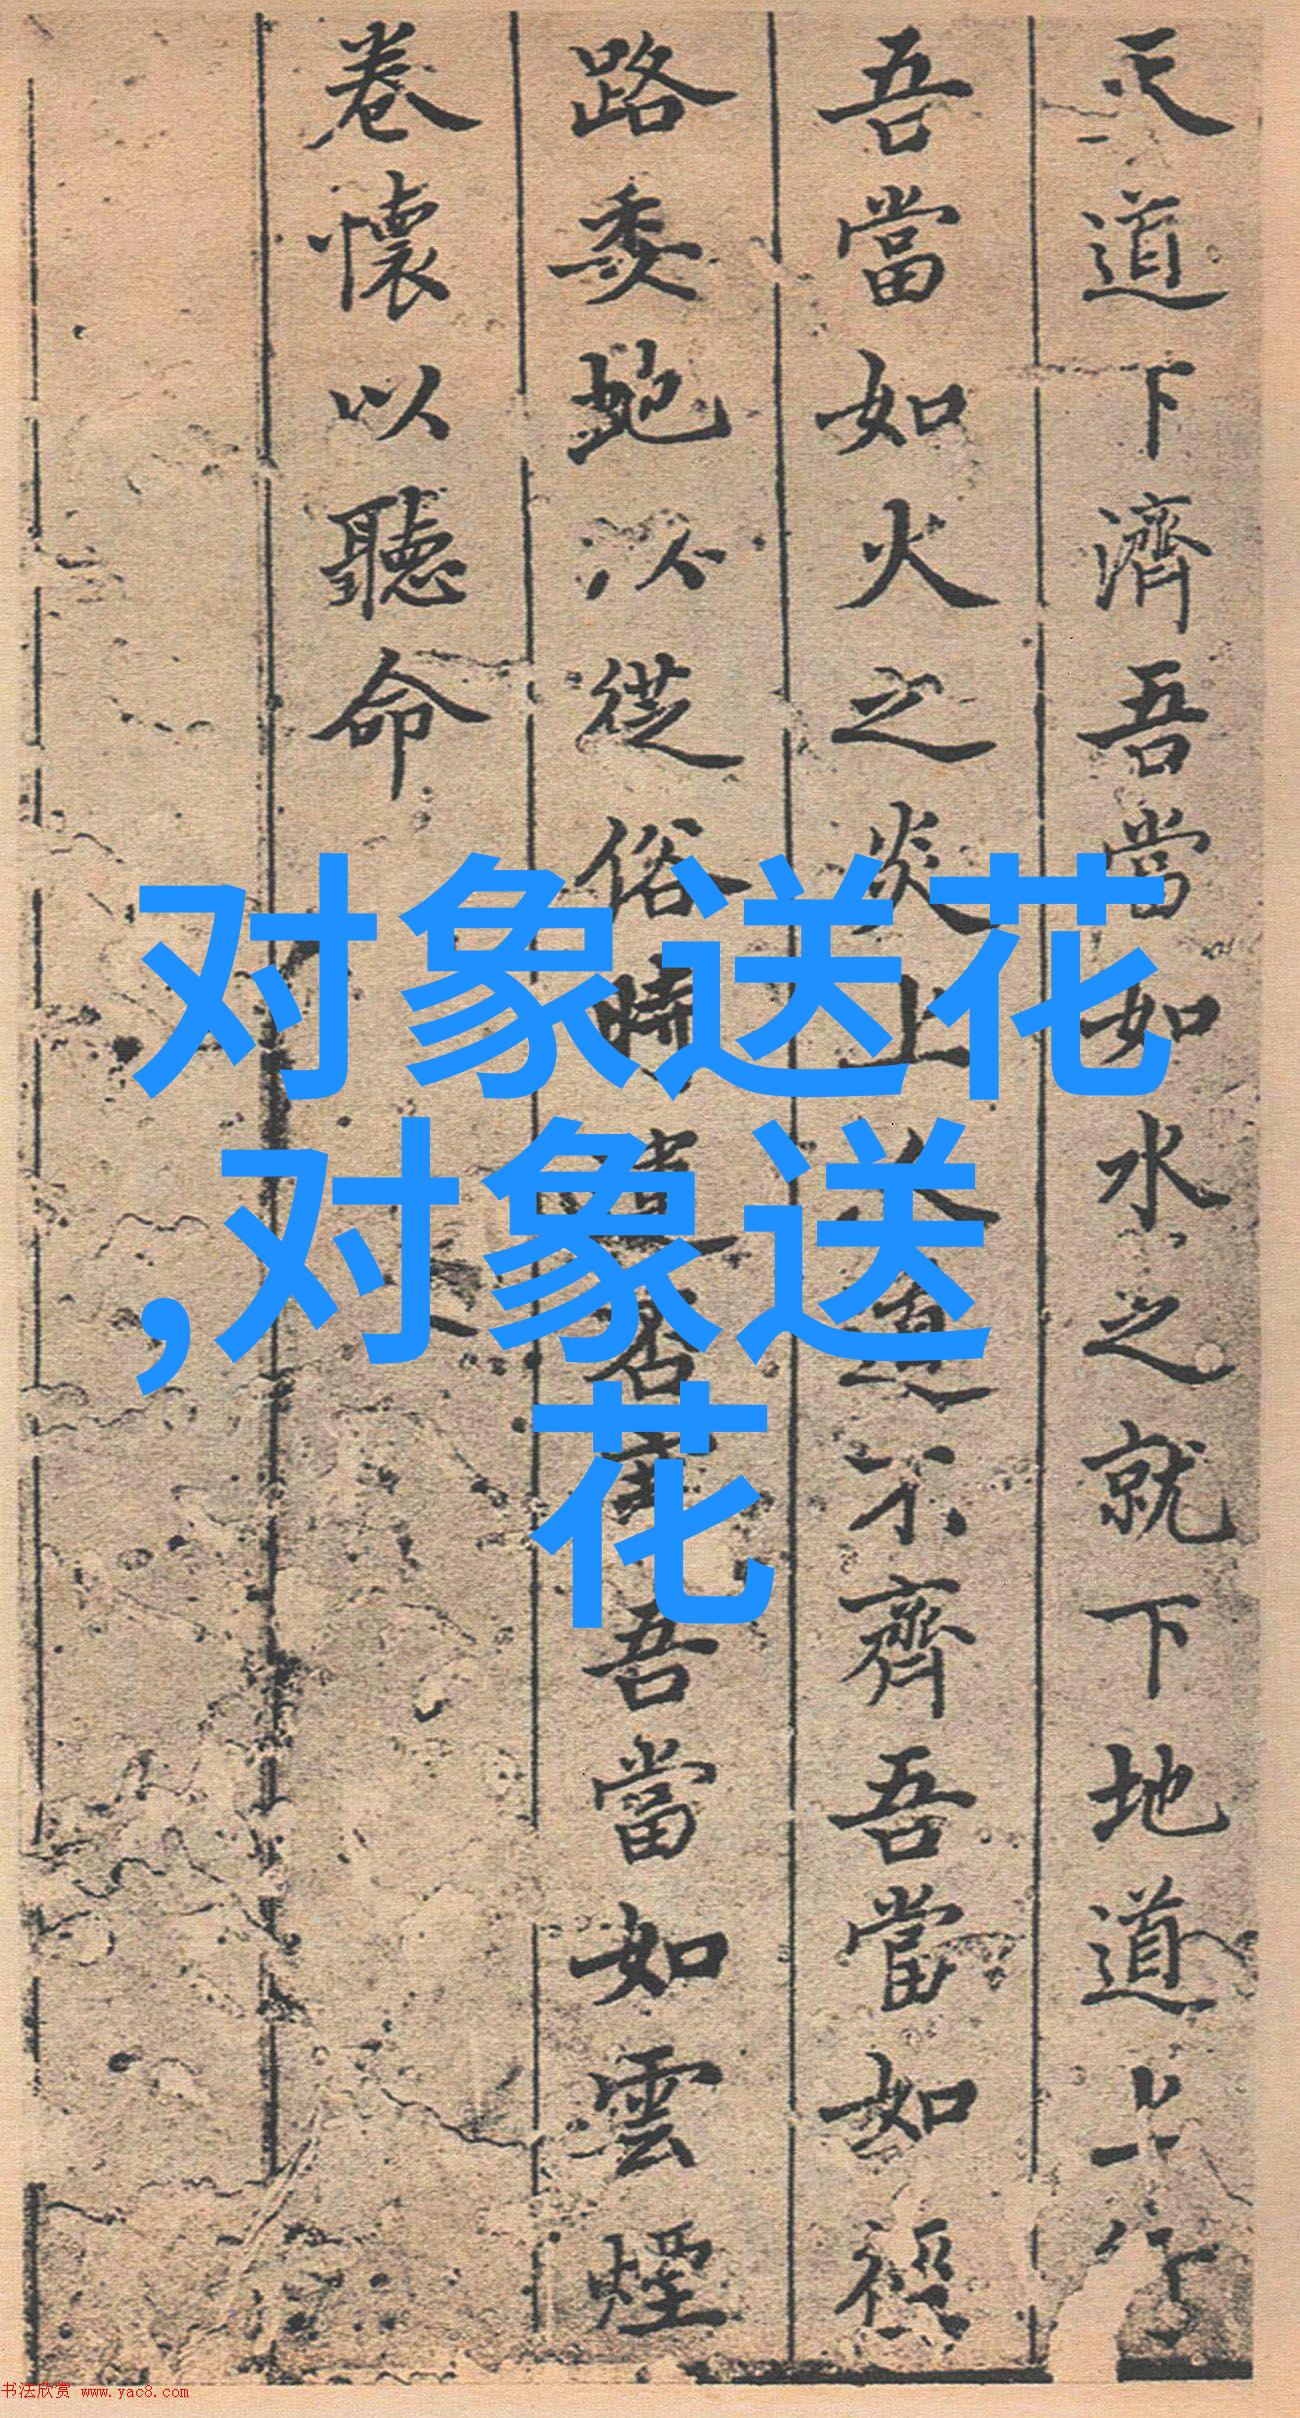 天道下濟吾當如水之就下地道上行
吾當如火之炎上人道不齊吾當如
路委虵以從俗時吾當如雲煙
卷懷以聽命
对象送花
,对象送
花
书法欣赏 www.yac8.com